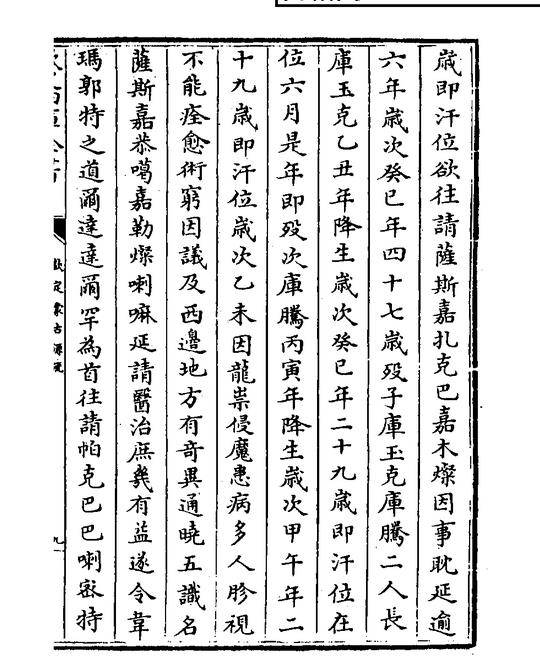 歳即汗位欲往請薩斯嘉扎克巴嘉木燦因事耽延逾
六年歳次癸巳年四十七歳殁子庫玉克庫騰二人長
庫玉克乙丑年降生歳次癸巳年二十九歳即汗位在
位六月是年即殁次庫騰丙寅年降生歳次甲午年二
十九歳即汗位歳次乙未因龍祟侵魔患病多人胗視
不能痊愈術窮因議及西邊地方有竒異通曉五識名
薩斯嘉恭噶嘉勒燦喇嘛延請醫治庶㡬有益遂令韋
瑪郭特之道爾達達爾罕為首往請帕克巴巴喇密特
欽定蒙古源流
九